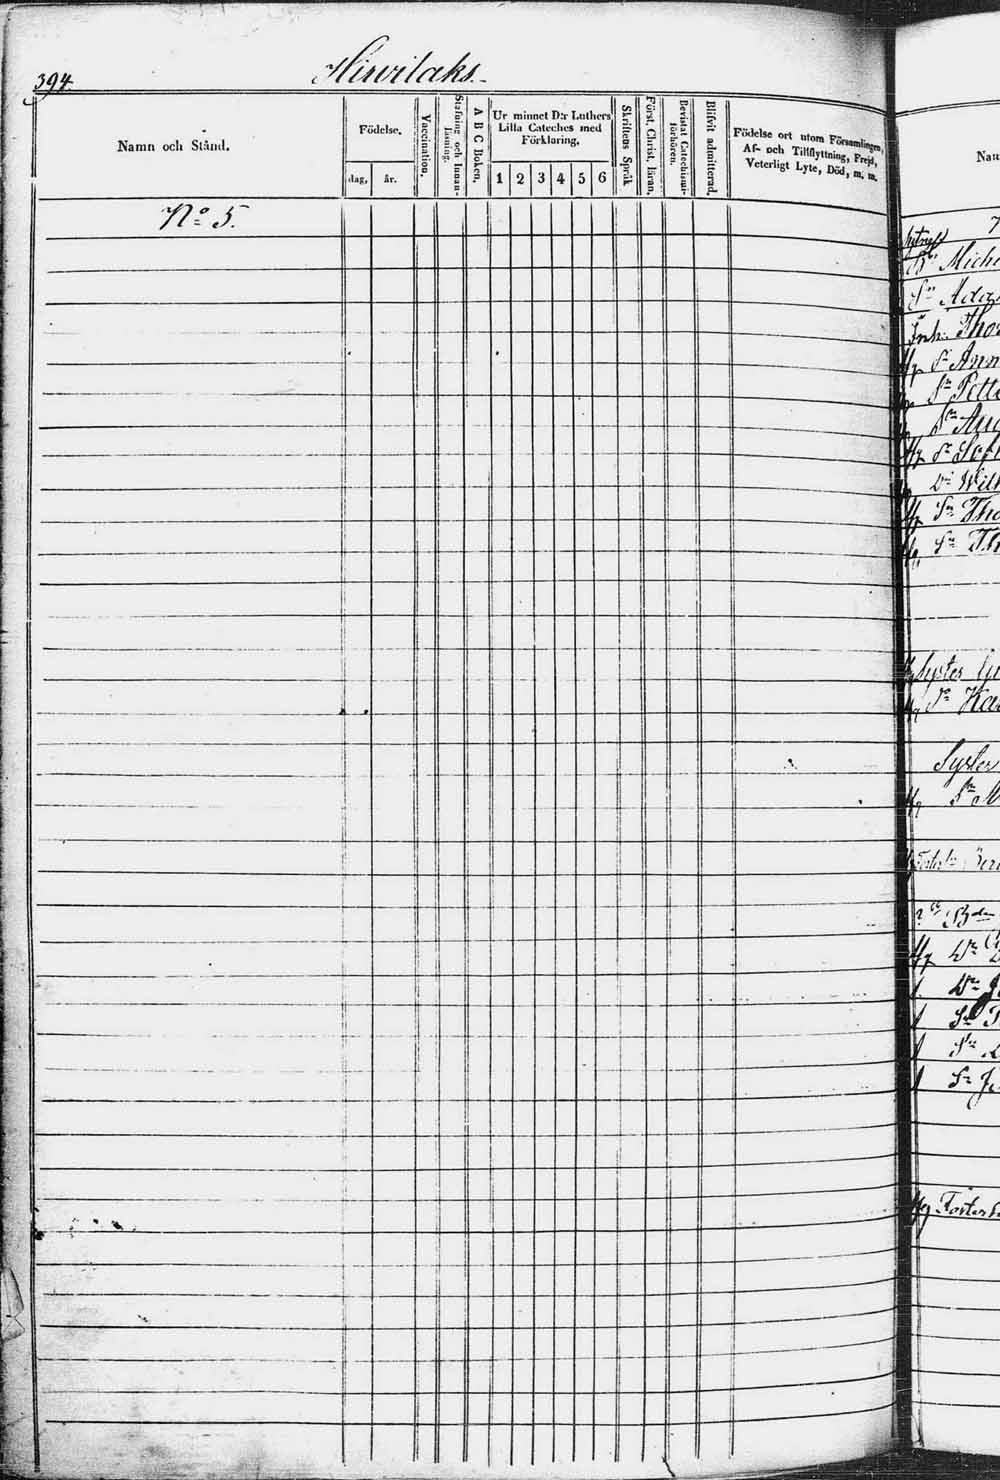 394.
Hirvilaks.
Namn och Stånd.
Födelse.
dag,
år.
Vaccination.
Stafning och Innan-
läsning.
A B C Boken.
Ur minnet D:r Luthers
Lilla Cateches med
Förklaring.
1 2 3 4 5 6
Skriftens Språk
Först. Christ. läran.
Bevistat Catechismi-
förhören.
Blifvit admitterad.
Födelse ort utom Församlingen,
Af- och Tillflyttning, Frejd,
Veterligt Lyte, Död, m. m.
No 5.
Nam
Mich
Sn Ada
Inh. Tho
Ann
Sn Pette
Sn
Sofi
Dr Wilh
Sn Tho
Sn Th
Syster
Ka
Syster
Sn M
Dr
Sn
Sn
Foster